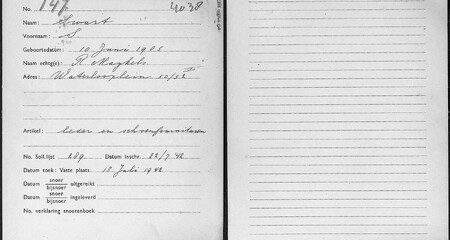 No. 147 4038
Naam : Swart
Voornaam : S.
Geboortedatum : 10 Juni 1905
Naam echtg(e): R.
Adres : Waterlooplein 50/52 I
Artikel : leder en schoenfournituren
No. Soll.lijst 289. Datum inschr. 25/7 '42
Datum toek : Vaste plaats . 15 Juli 1942
Datum snoer bijsnoer uitgereikt
Datum snoer bijsnoer ingeleverd
No. verklaring snoerenboek